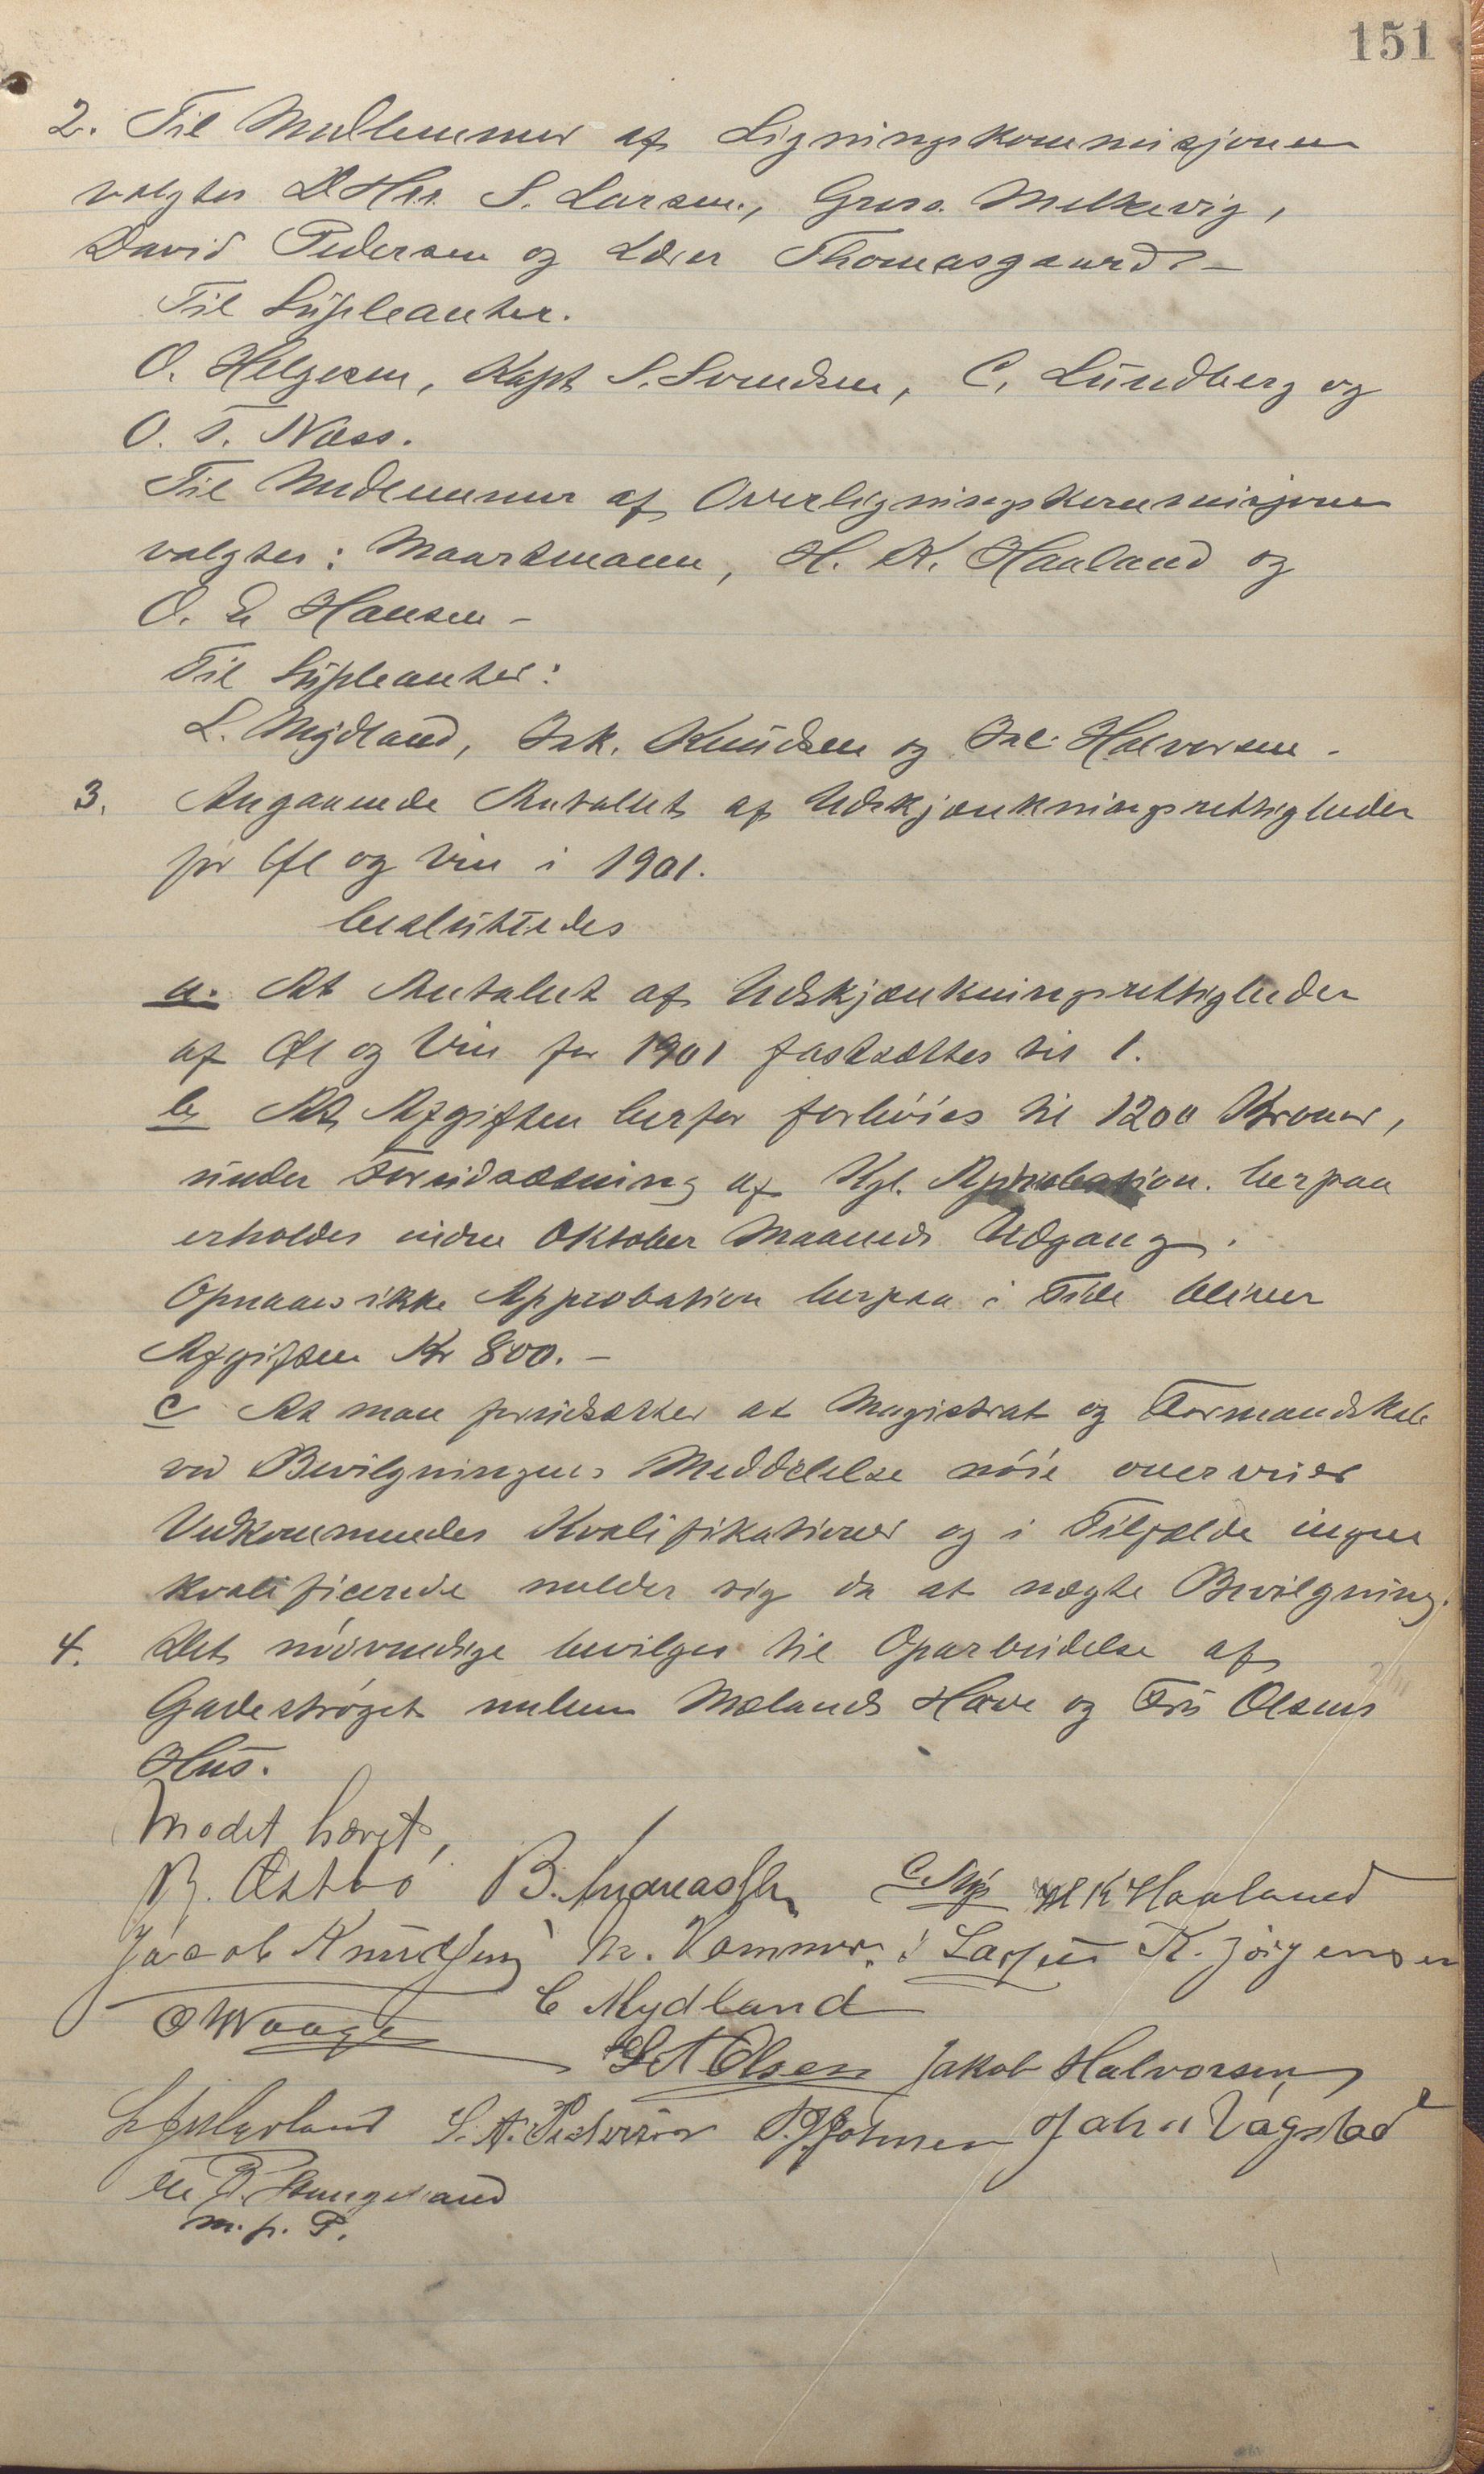 151
2. Til Medlemmer af Ligningskommisjonen
valgtes DHrr. S. Larsen, Gross. Melkevig,
David Pedersen og Lærer Thomasgaard. –
Til Supleanter.
O. Helgesen, Kapt S. Svendsen, C. Lundberg og
O. T. Næss.
Til Medlemmer af Overligningskommisjonen
valgtes: Maartmann, H. K. Haaland og
O. E Hansen –
Til Supleanter:
L. Mydland, Jak. Knudsen og Jac. Halvorsen –
3. Angaaende Antallet af Udskjænkningsrettigheder
for Øl og Vin i 1901.
besluttedes
a. At Antallet af Udskjænkningsrettigheder
af Øl og Vin for 1901 fastsættes til 1.
b At Afgiften herfor forhöies til 1200 Kroner,
under Forudsætning af Kgl. Approbation herpaa
erholdes inden Oktober Maaneds Udgang.
Opnaaes ikke Approbation herpaa i Tide bliver
Afgiften Kr 800. –
c At man forudsætter at Magistrat og Formandskab
ved Bevilgningens Meddelelse nöie overveier
Vedkommendes Kvalifikationer og i Tilfælde ingen
kvalificerede melder sig da at nægte Bevilgning.
4. Det nödvendige bevilges til Oparbeidelse af
Gadeströget mellem Mælands Have og Fru Olsens
Hus.
Mödet hævet,
B. Østbö B. Andreassen H K Haaland
Jacob Knudsen M. Hammer S Larsen K. Jörgensen
O Waage L Mydland
S A Olsen Jakob Halvorsen
S. A. Pedersen Johan Vagstad
m. p. P.